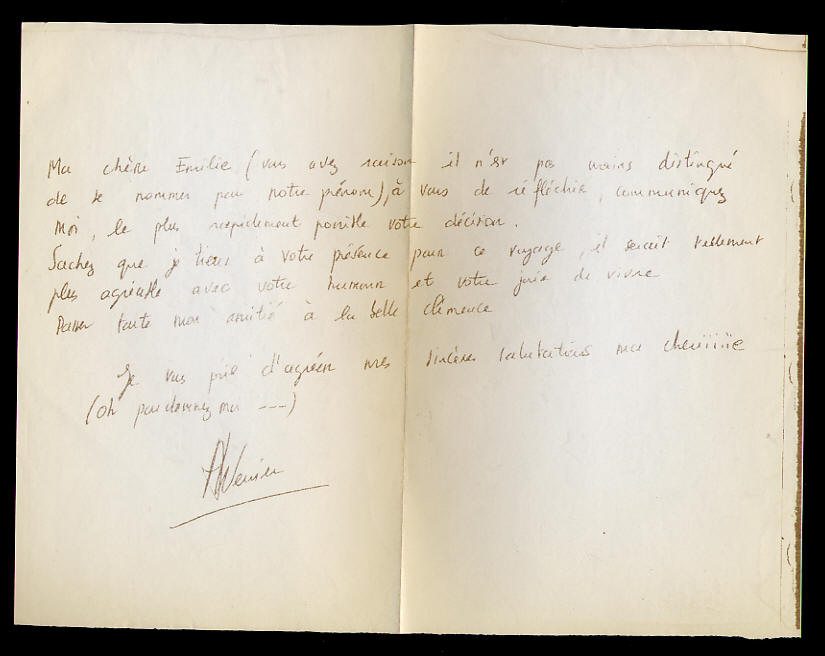 Ma chère Emilie (vous avez raison il n'est pas moins distingué
de se nommer par notre prénom), à vous de réfléchir, communiquez
moi, le plus rapidement possible votre décision.
Sachez que je tiens à votre présence pour ce voyage, il serait tellement
plus agréable avec votre humour et votre joie de vivre
Passer toute mon amitié à la belle Clémence
Je vous prie d'agréer mes sincères salutations ma cheriiiiie
(oh pardonnez moi ---)